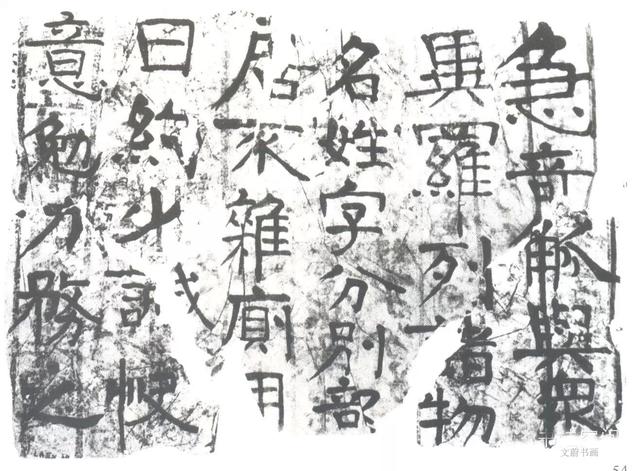 急奇觚與眾
異羅列諸物
名姓字分別部
居不雜廁用
日約少誠快
意勉力務之
文蔚书画
54